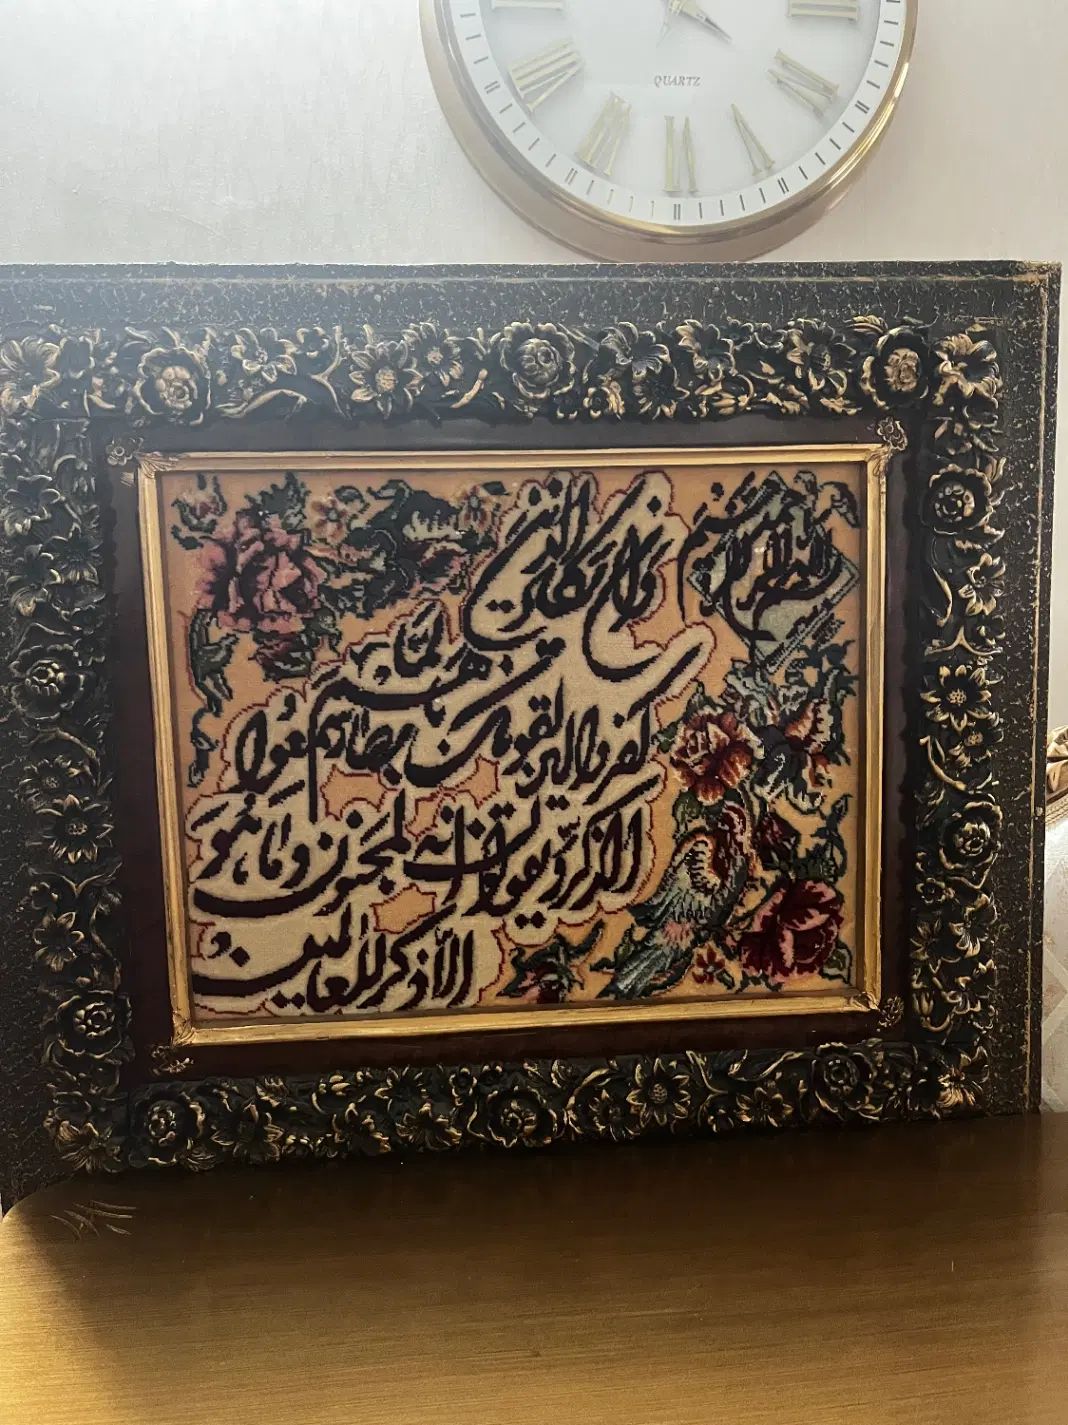 QUARTZ
بسم الله الرحمن الرحیم
وان یکاد الذین
کفروا لیزلقونک بابصارهم لما سمعوا
الذکر و یقولون انه لمجنون و ما هو
الا ذکر للعالمین